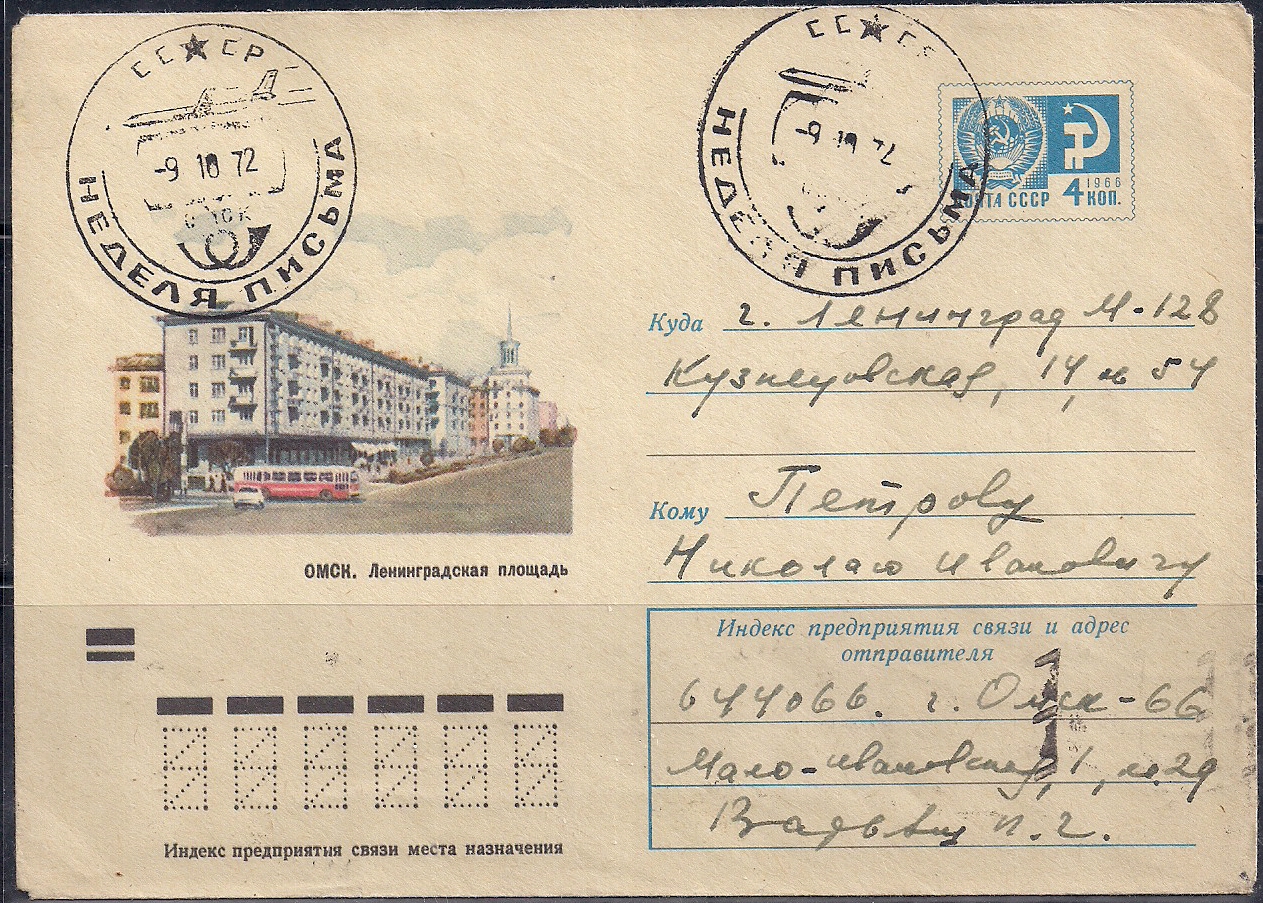 СССР
-9 10 72
ОМСК
НЕДЕЛЯ ПИСЬМА
СССР
-9 10 72
НЕДЕЛЯ ПИСЬМА
1966
ПОЧТА СССР 4 КОП.
Куда г. Ленинград М-128
Кузнецовская, 14, м 54
Кому Петрову
Николаю Ивановичу
ОМСК. Ленинградская площадь
Индекс предприятия связи и адрес
отправителя
644066. г. Омск-66
Мало-Ивановская, 1, м. 29
П. Г.
Индекс предприятия связи места назначения